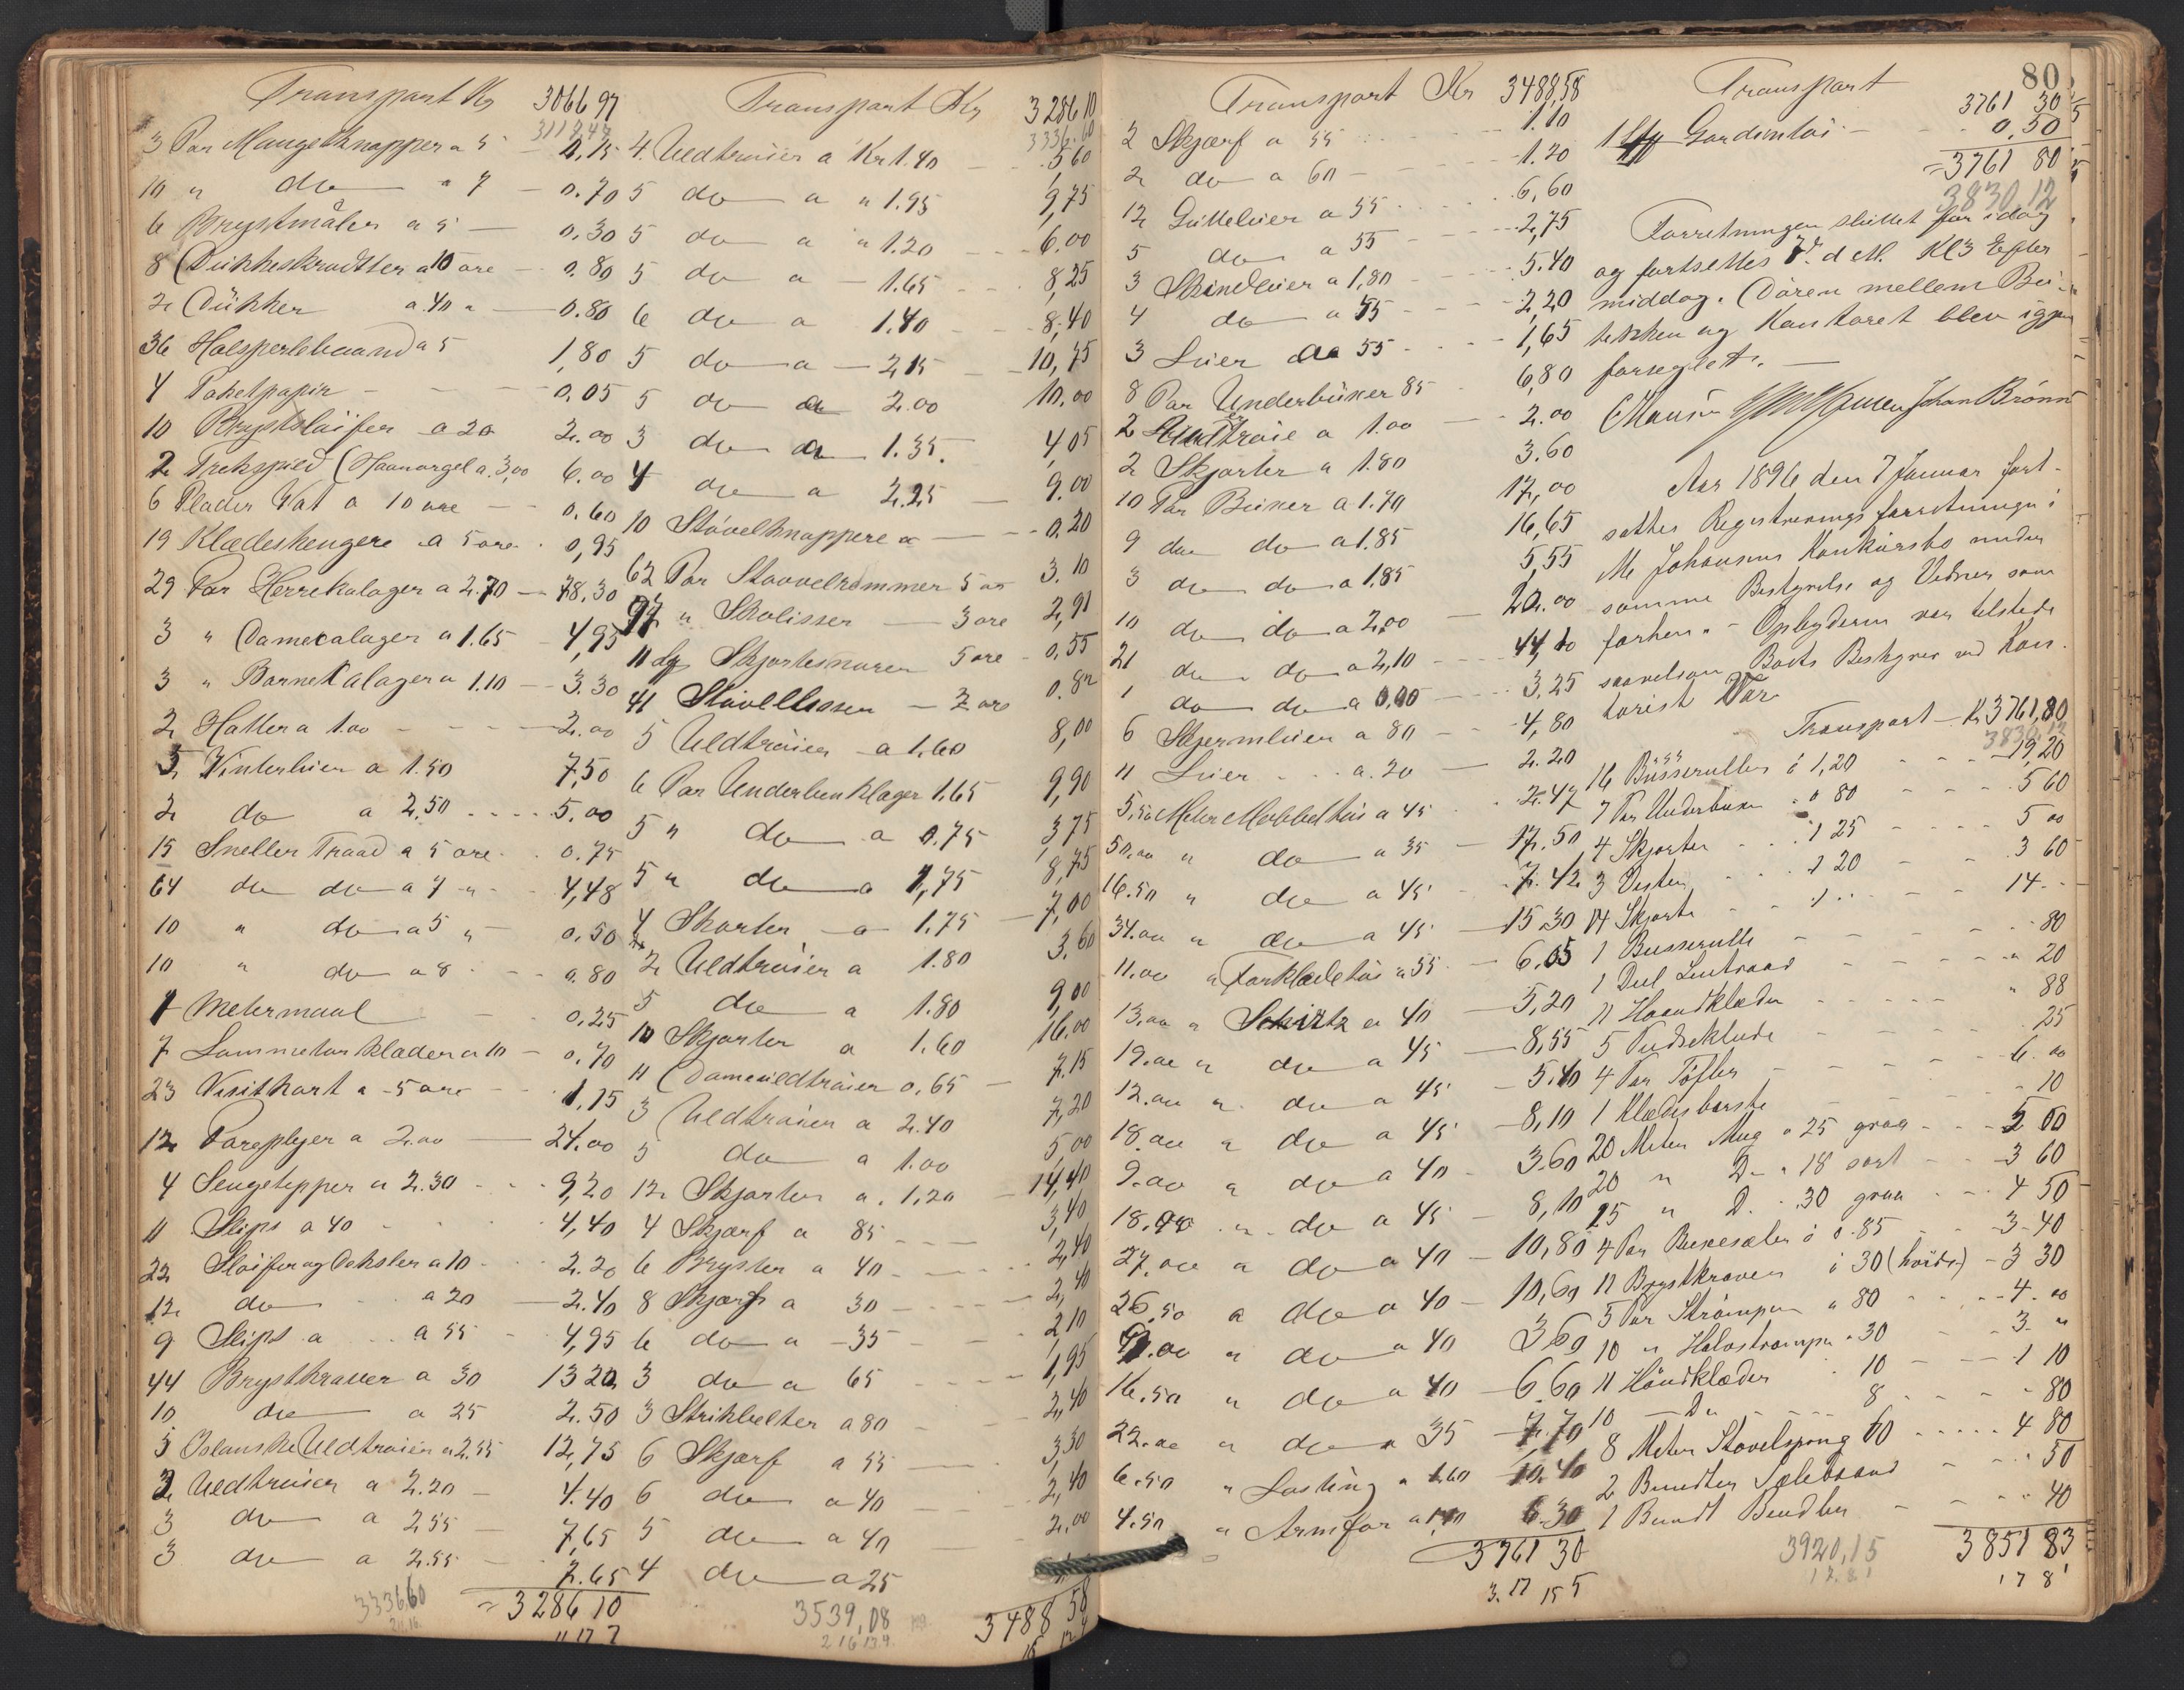 Transport Kr 3066 97
3117,47
3 Par Mangelknapper a 5 — 0,15
10 " do " 7 — 0.70
6 Brystmåler a 5 — 0.30
8 Dukkeskrodtter a 10 øre — 0.80
2 Dükker a 40 " — 0.80
36 Halsperlebaand a 5 1,80
4 Paketpapir — 0,05
10 Brystsløifer a 20 2.00
2 Trekspied (Haanorgel a. 3,00 6.00
6 Plader Vat a 10 øre — 0.60
19 Klædeshengere a 5 øre 0,95
29 Par Herrekalager a 2.70 — 78,30
3 " Damekalager a 1.65 4,95
3 " Barnekalager a 1.10 — 3.30
2 Hatter a 1.00 — 2.00
3 Vinterluer a 1.50 7,50
2 do a 2,50 5.00
15 Sneller Traad a 5 øre 0.75
64 do do a 7 " 4,48
10 " do a 5 " 0.50
10 " do a 8 0.80
1 Metermaal 0.25
7 Lommetørklæder a 10 — 0.70
23 Visitkort a 5 øre 1,15
12 Pareplyer a 2.00 — 24.00
4 Sengetepper a 2.30 9,20
11 Slips a 40 4,40
22 Sløifer og Dekster a 10 2.20
12 do a 20 — 2.40
9 Slips a a 55 4,95
44 Brystkraver a 30 13 20
10 do a 25 2.50
5 Islanske Uldtrøier a 2.55 12,75
2 Uldtrøier a 2.20 — 4.40
3 do a 2,55 7,65
3 do a 2.55 7.65
3336.60 = 3286 10
Transport Kr 3286 10
3336.60
4 Uldtrøier a Kr 1.40 — 5 60
5 do a " 1.95 9,75
5 do a " 1.20 6.00
5 do a — 1.65 8,25
6 do a 1.40 8,40
5 do a — 2,15 10,75
5 do a 2.00 10.00
3 do a 1.35 4,05
4 do a 2.25 9.00
10 Støvelknappere a — 0.20
62 Par Stoovelrømmer 5 øre 3.10
97 " Skolisser — 3 øre 2,91
11 Lg Skjortesnorer 5 øre 0,55
41 Støvellisser — 2 øre 0.82
5 Uldtrøier a 1.60 8,00
6 Par Underbenklæger 1.65 9,90
5 " do a 0.75 3,75
5 " do a 1,75 8,75
4 Skorter a 1,75 — 7,00
2 Uldtrøier a 1.80 3.60
5 do a 1.80 9,00
10 Skjorter a 1.60 16.00
11 Dameuldtrøier 0.65 — 7.15
3 Uldtrøier a 2.40 7,20
5 do a 1.00 5,00
12 Skjorter a 1.20 14,40
4 Skjærf a 85 3,40
6 Bryster a 40 2,40
8 Skjærf a 30 2,40
6 do a 35 2,10
3 do a 65 1,95
3 Strikbelter a 80 2,40
6 Skjærf a 55 3,30
6 do a 40 2,40
5 do a 40 2.00
4 do a 25
3539,08 3488 58
80
Transport Kr 3488,58
2 Skjærf a 55 1.10
2 do a 60 1.20
12 Guttelüer a 55 6,60
5 do a 55 2,75
3 Skindlüer a 1,80 5.40
4 do a 55 2,20
3 Lüer a 55 1,65
8 Par Underbüxer 85 6,80
2 Uldtrøie a 1.00 2.00
2 Skjorter a 1.80 3.60
10 Par Buxer a 1.70 17,00
9 do do a 1.85 16,65
3 do do a 1.85 5,55
10 do do a 2,00 20.00
21 do do a 2,10 44,10
1 do do a 3,25
6 Skjermlüer a 80 4,80
11 Lüer a. 20 2.20
5,50 Meter Møbbeltøi a 45 2.47
50.00 " do a 35 17.50
16.50 " do a 45 7.42
34.00 " do a 45 15 30
11.00 " Forklædetøi a 55 6.05
13.00 " Schirtz a 40 5,20
19.00 " do a 45 8,55
12.00 " do a 45 5.40
18.00 " do a 45 8,10
9.00 " do a 40 3.60
18.00 " do a 45 8,10
27.00 " do a 40 10,80
26,50 a do a 40 10,60
9.00 " do a 40 3 60
16.50 " do a 40 6.60
22.00 " do a 35 7.70
6.50 " Lasting a 1.60 10.40
4.50 " Armfor a 1.40 6.30
3761 30
Transport
3761 30
1 Gardintøi — 0,50
= 3761 80
3830,12
Forretningen sluttet for idag
og fortsettes 7d. d. M. Kl 3 Efter
middag. Døren mellem Bu-
tikken og Kontoret blev igjen
forseglet. —
CHansen Johan Brønn
Aar 1896 den 7 Januar fort-
sattes Registrerings forretningen i
M Johansens Konkürsbo under
samme Bestyrelse og Vidner som
forhen. - Opbyderen var tilstede
saavelsom Boets Bestyrer ved Kon-
torist Vor
Transport — Kr 3761,80
16 Büsseruller á 1,20 19,20
7 Par Underbuxe a 80 5 60
4 Skjorter 1 25 5 00
3 Vester 1 20 3 60
14 Skjorte 1 14.
1 Busserulle 80
1 Deel Lintraad 20
11 Haandklæder 88
5 Pudseklude 25
4 Par Tøfler 6.00
1 Klædesbørste 10
20 Meter Mug a 25 graa 5 00
20 " D 18 sort 3 60
15 " D 30 graa 4 50
4 Par Buxesæler á 0.85 3 40
11 Brystkraver á 30 (hvide) 3 30
5 Par Strømper a 80 4.00
10 " Halvstrømper 30 3. "
11 Håndklæder 10 1 10
10 — D 8 80
8 Meter Støvelspong 60 4 80
2 Bundter Sølvbaand 50
1 Bundt Bendler 40
3920,15 3851 83